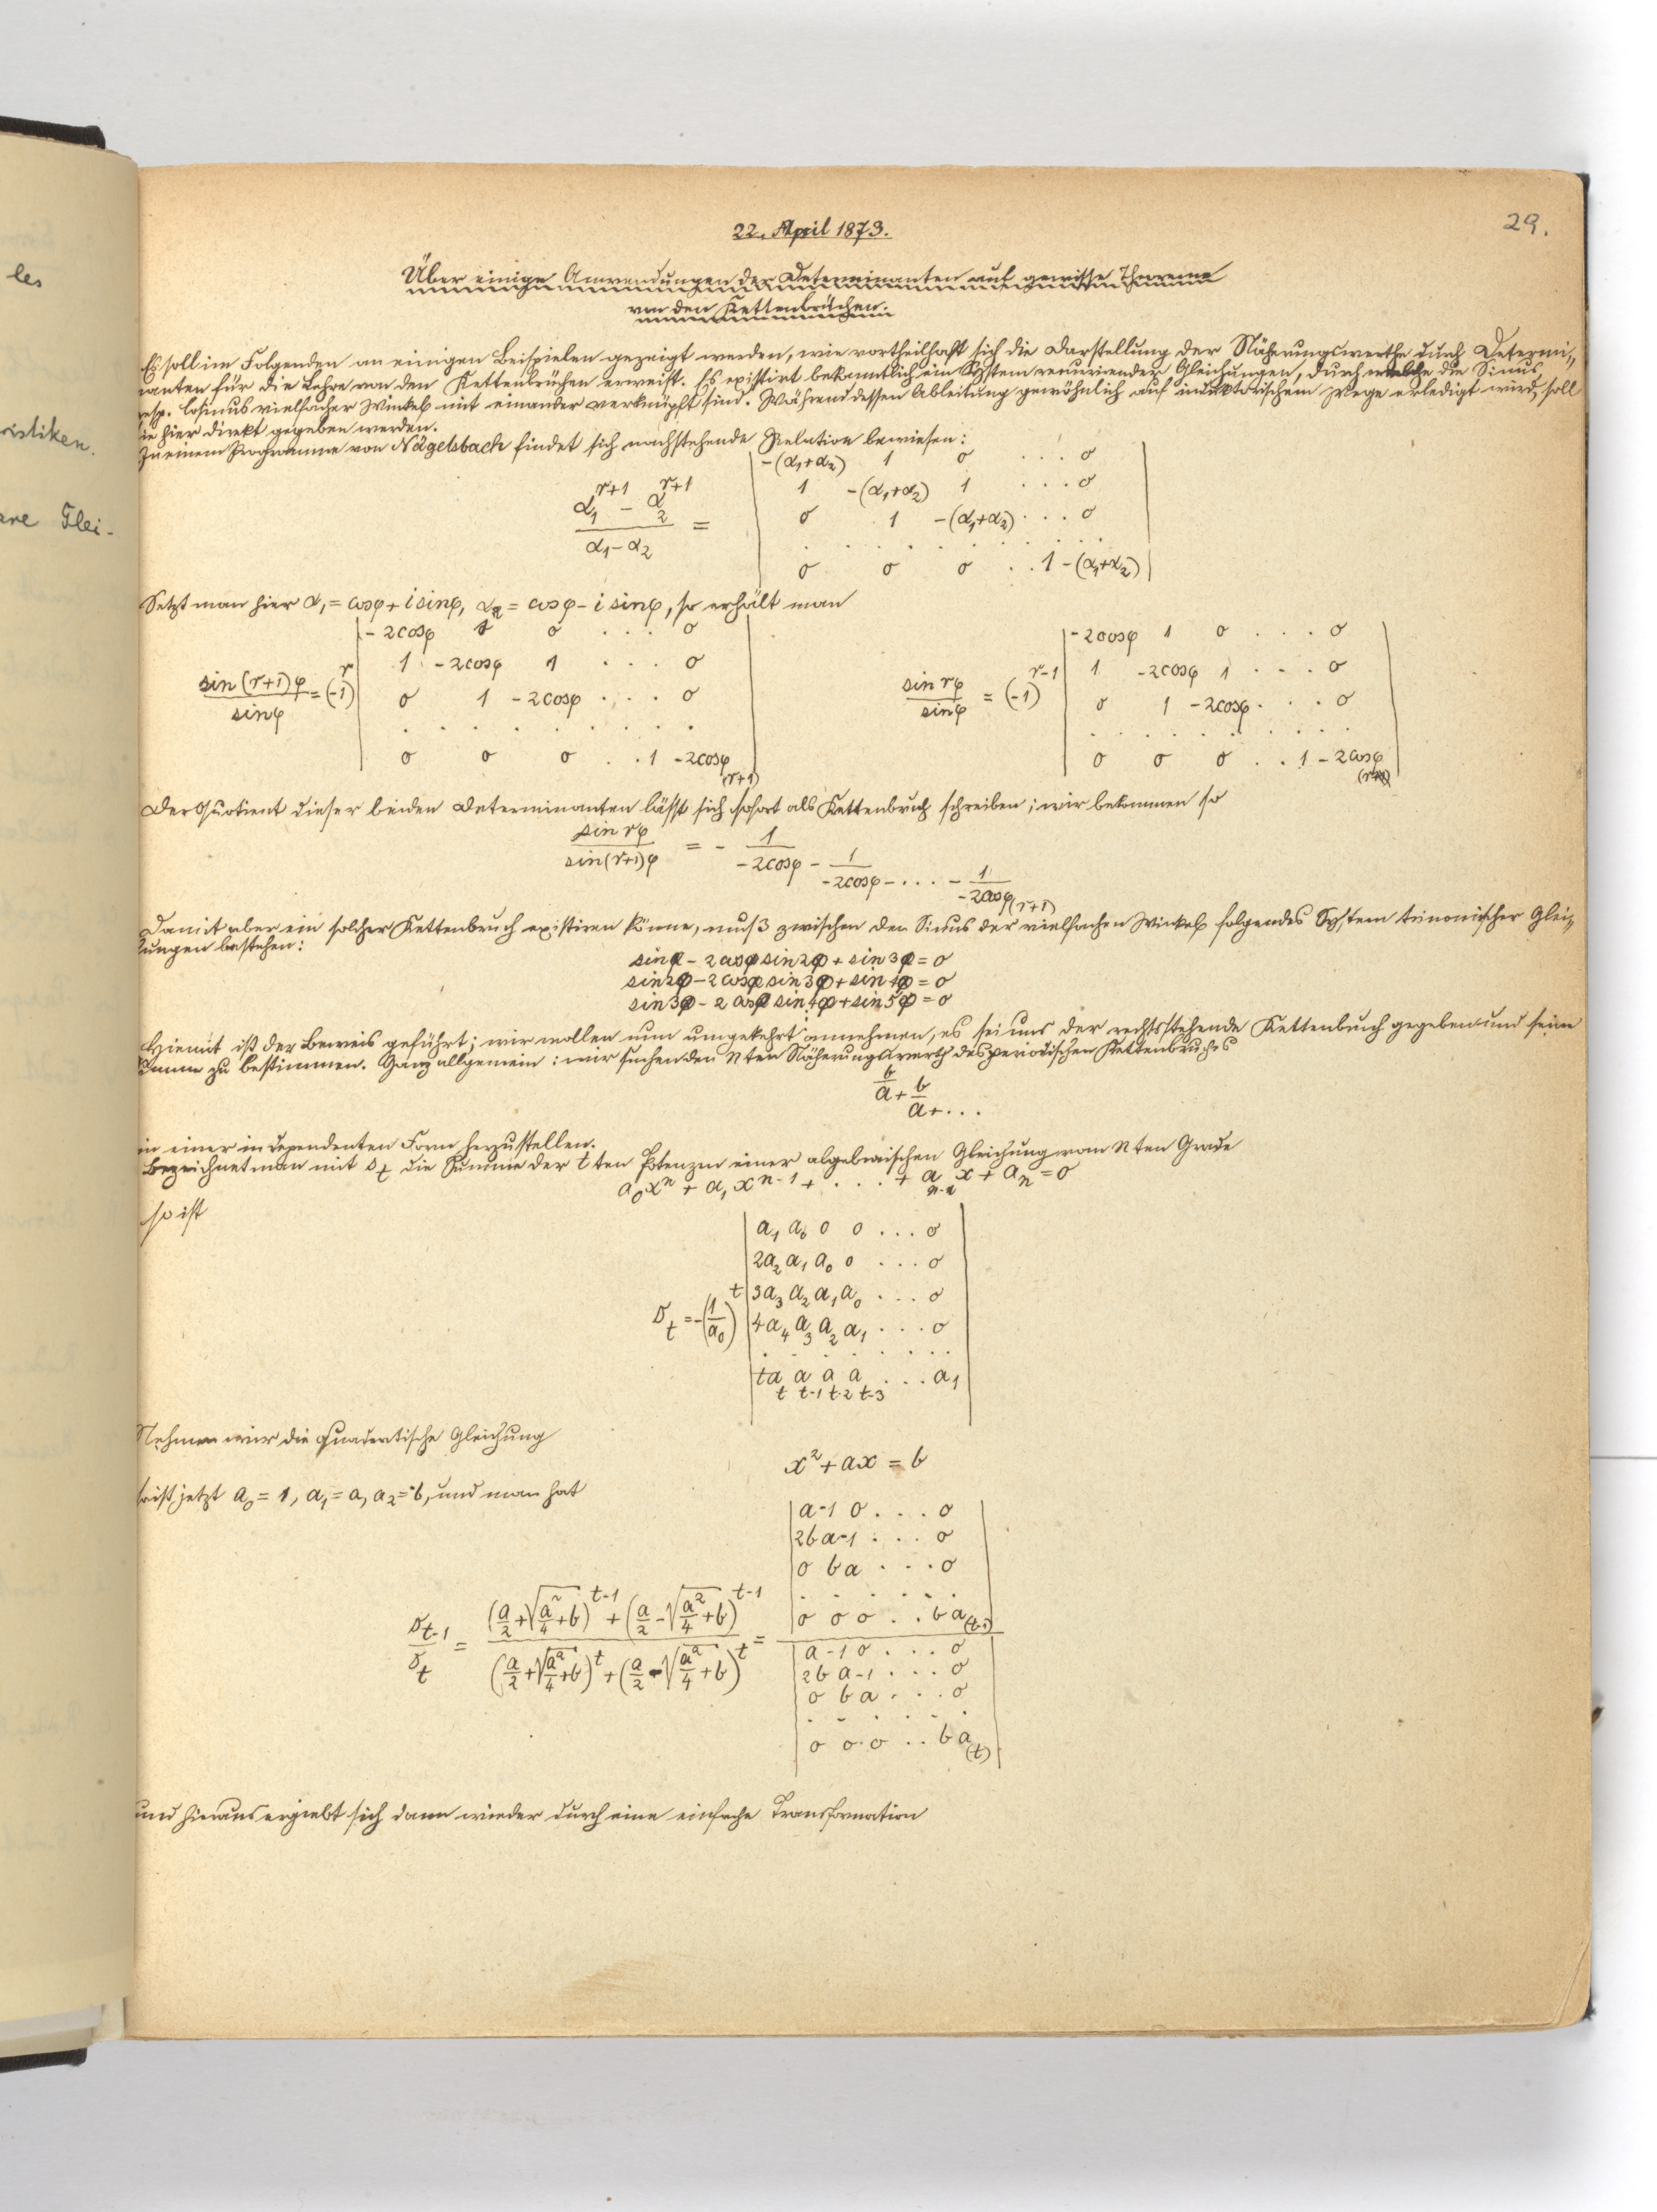 les
ristiken.
are Glei-
29.
22. April 1873.
Über einige Anwendungen der Determinanten auf gewisse Theoreme
von den Kettenbrüchen.
Es soll im Folgenden an einigen Beispielen gezeigt werden, wie vortheilhaft sich die Darstellung der Näherungswerthe durch Determi-
nanten für die Lehre von den Kettenbrüchen erweist. Es existirt bekanntlich ein System recurrirender Gleichungen, durch welche die Sinus
resp. Cosinus vielfacher Winkel mit einander verknüpft sind. Während dessen Ableitung gewöhnlich auf induktorischem Wege erledigt wird, soll
sie hier direkt gegeben werden.
In einem Programme von Nägelsbach findet sich nachstehende Relation bewiesen:
(α₁^{r+1} - α₂^{r+1})/(α₁ - α₂) =
| -(α₁+α₂) 1 0 . . . 0 |
| 1 -(α₁+α₂) 1 . . . 0 |
| 0 1 -(α₁+α₂) . . . 0 |
| . . . . . . . . |
| 0 0 0 . . 1 -(α₁+α₂) |
Setzt man hier α₁ = cosφ + i sinφ, α₂ = cosφ - i sinφ, so erhält man
sin(r+1)φ/sinφ = (-1)^r
| -2cosφ 1 0 . . . 0 |
| 1 -2cosφ 1 . . . 0 |
| 0 1 -2cosφ . . . 0 |
| . . . . . . . . |
| 0 0 0 . . 1 -2cosφ |
(r+1)
sin rφ/sinφ = (-1)^{r-1}
| -2cosφ 1 0 . . . 0 |
| 1 -2cosφ 1 . . . 0 |
| 0 1 -2cosφ . . . 0 |
| . . . . . . . . |
| 0 0 0 . . 1 -2cosφ |
Der Quotient dieser beiden Determinanten lässt sich sofort als Kettenbruch schreiben; wir bekommen so
sin rφ/sin(r+1)φ = - 1/-2cosφ - 1/-2cosφ - . . . - 1/-2cosφ (r+1)
Damit aber ein solcher Kettenbruch existiren könne, muß zwischen den Sinus der vielfachen Winkel folgendes System trinomischer Glei-
chungen bestehen:
sinφ - 2cosφ sin2φ + sin3φ = 0
sin2φ - 2cosφ sin3φ + sin4φ = 0
sin3φ - 2cosφ sin4φ + sin5φ = 0
Hiemit ist der Beweis geführt; wir wollen nun umgekehrt annehmen, es sei uns der rechtsstehende Kettenbruch gegeben und seine
Summe zu bestimmen. Ganz allgemein: wir suchen den nten Näherungswerth des periodischen Kettenbruches
b/a + b/a + . . .
in einer independenten Form herzustellen.
Bezeichnet man mit s_t die Summe der tten Potenzen einer algebraischen Gleichung vom nten Grade
a₀xⁿ + a₁xⁿ⁻¹ + . . . + a_{n-1}x + a_n = 0
so ist
s_t = (-1/a₀)^t
| a₁ a₀ 0 0 . . . 0 |
| 2a₂ a₁ a₀ 0 . . . 0 |
| 3a₃ a₂ a₁ a₀ . . . 0 |
| 4a₄ a₃ a₂ a₁ . . . 0 |
| . . . . . . . |
| ta_t a_{t-1} a_{t-2} a_{t-3} . . . a₁ |
Nehmen wir die quadratische Gleichung
x² + ax = b
so ist jetzt a₀ = 1, a₁ = a, a₂ = -b, und man hat
s_{t-1}/s_t = ((a/2 + √(a²/4 + b))^{t-1} + (a/2 - √(a²/4 + b))^{t-1})/((a/2 + √(a²/4 + b))^t + (a/2 - √(a²/4 + b))^t) =
| a -1 0 . . . 0 |
| 2b a -1 . . . 0 |
| 0 b a . . . 0 |
| . . . . . . |
| 0 0 0 . . b a | (t-1)
| a -1 0 . . . 0 |
| 2b a -1 . . . 0 |
| 0 b a . . . 0 |
| . . . . . . |
| 0 0 0 . . b a | (t)
und hieraus ergiebt sich dann wieder durch eine einfache Transformation